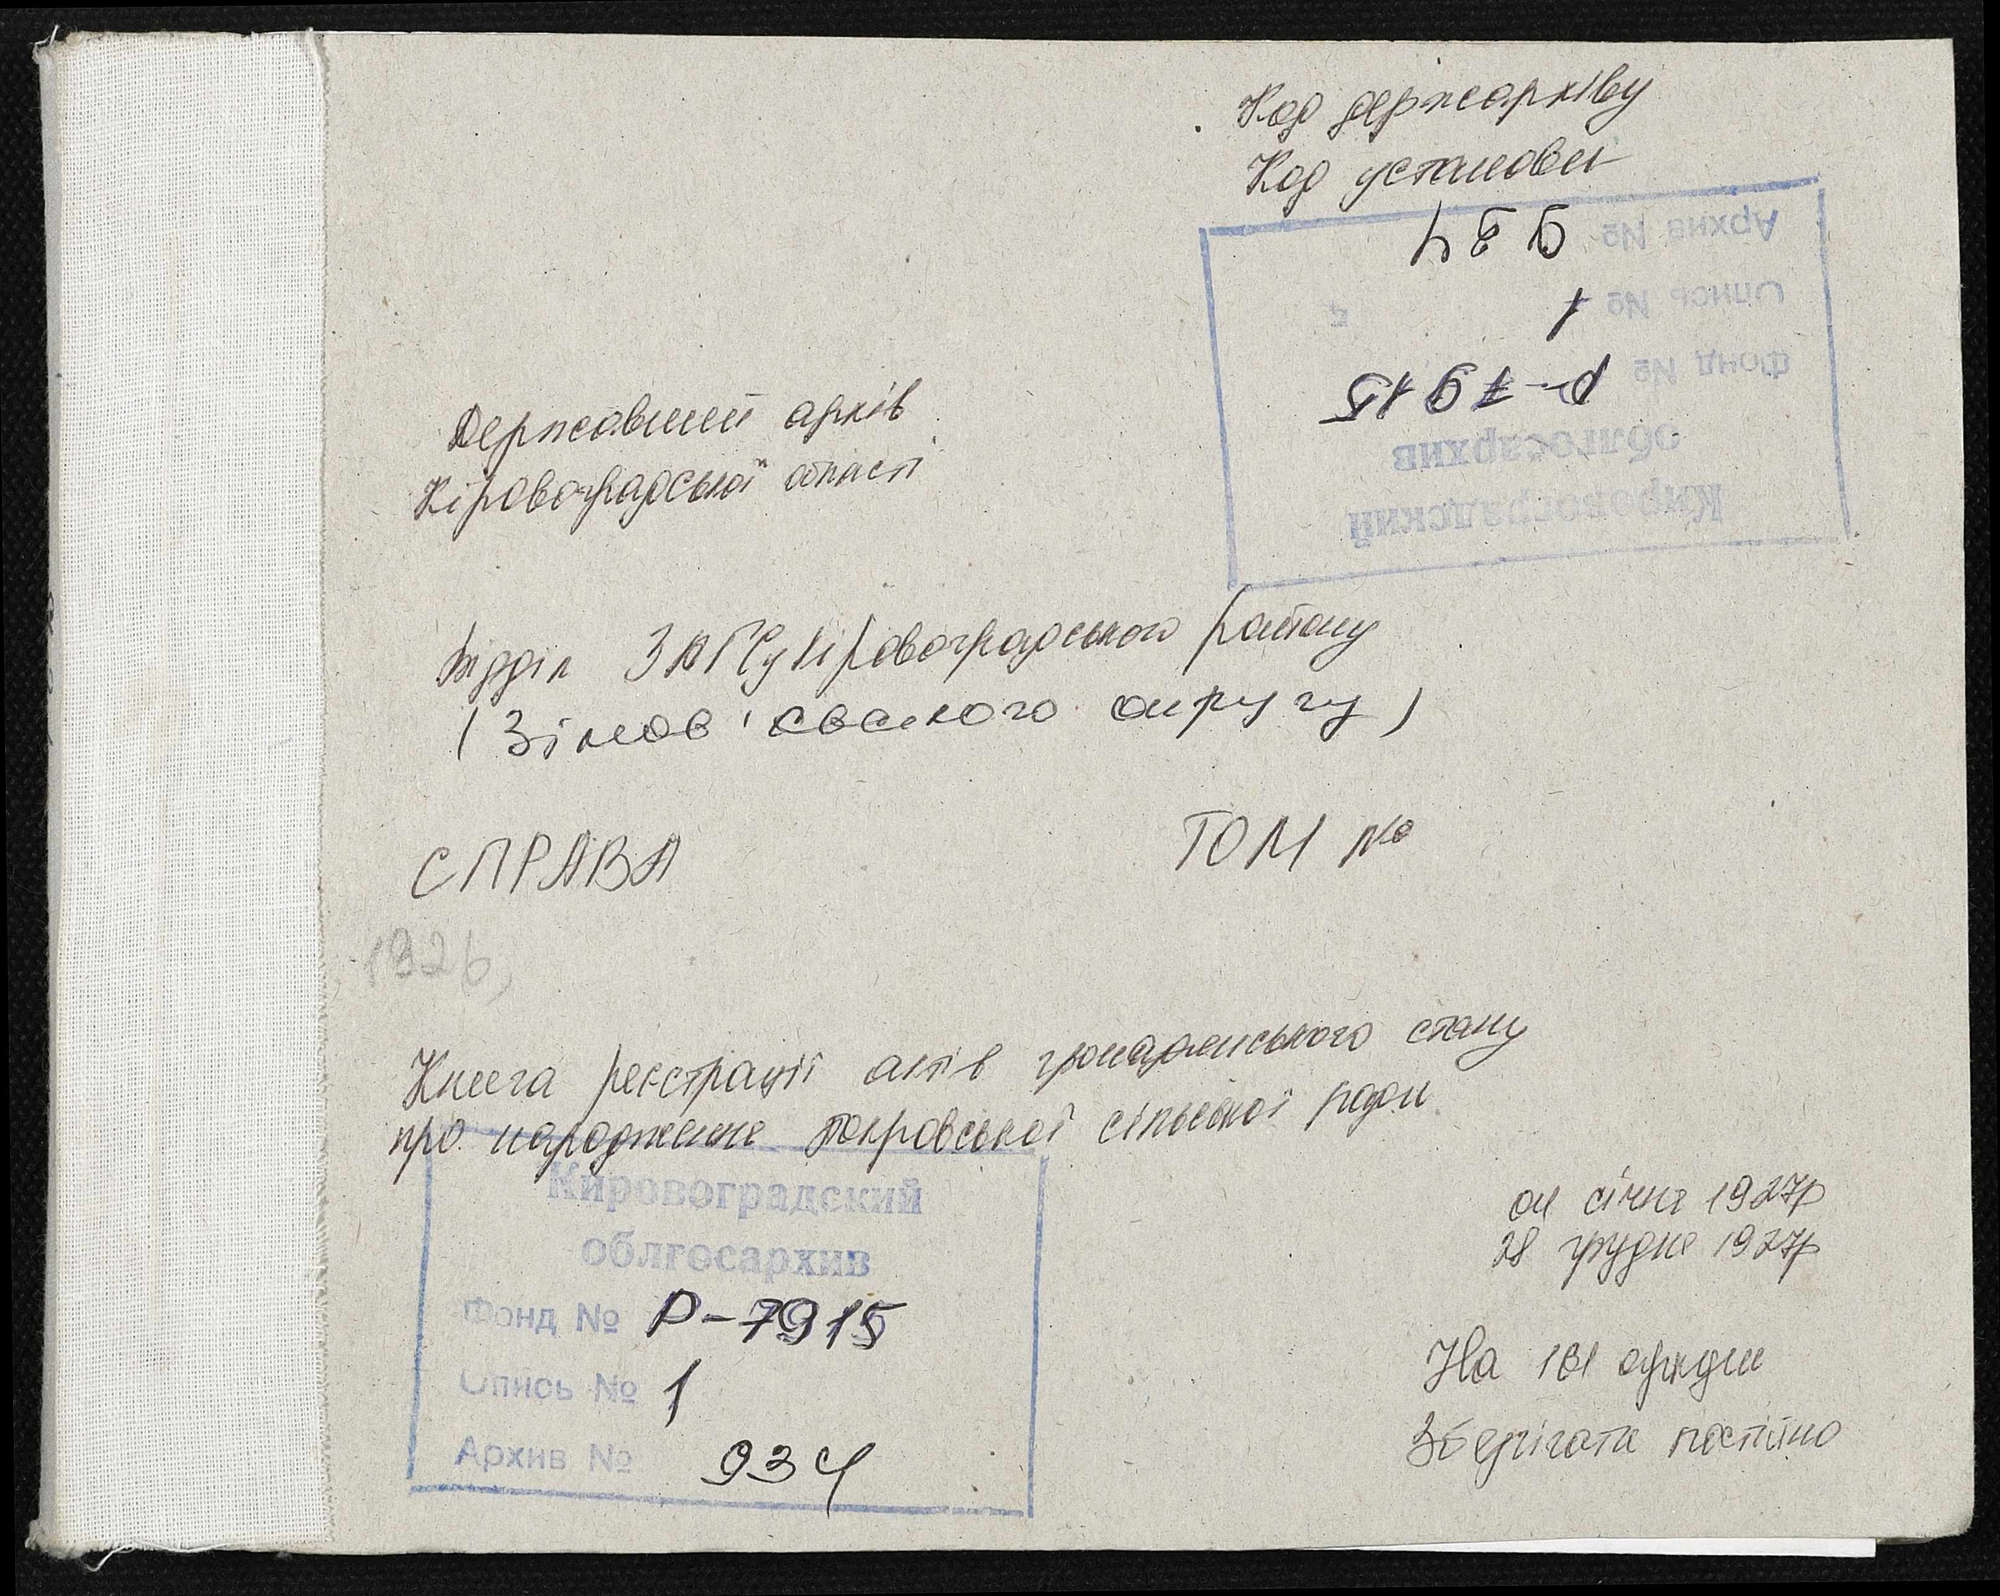 Код держархіву
Код установи
Архив № 934
Опись № 1
Фонд № Р-7915
облгосархив
Кировоградский
Державний архів
Кіровоградської області
Відділ ЗАГСу Кіровоградського району
(Зінов'євського округу)
СПРАВА ТОМ №
1926,
Книга реєстрації актів громадянського стану
про народження Покровської сільської ради
04 січня 1927р
28 грудня 1927р
Кировоградский
облгосархив
Фонд № Р-7915
Опись № 1
Архив № 934
На 181 аркуші
Зберігати постійно